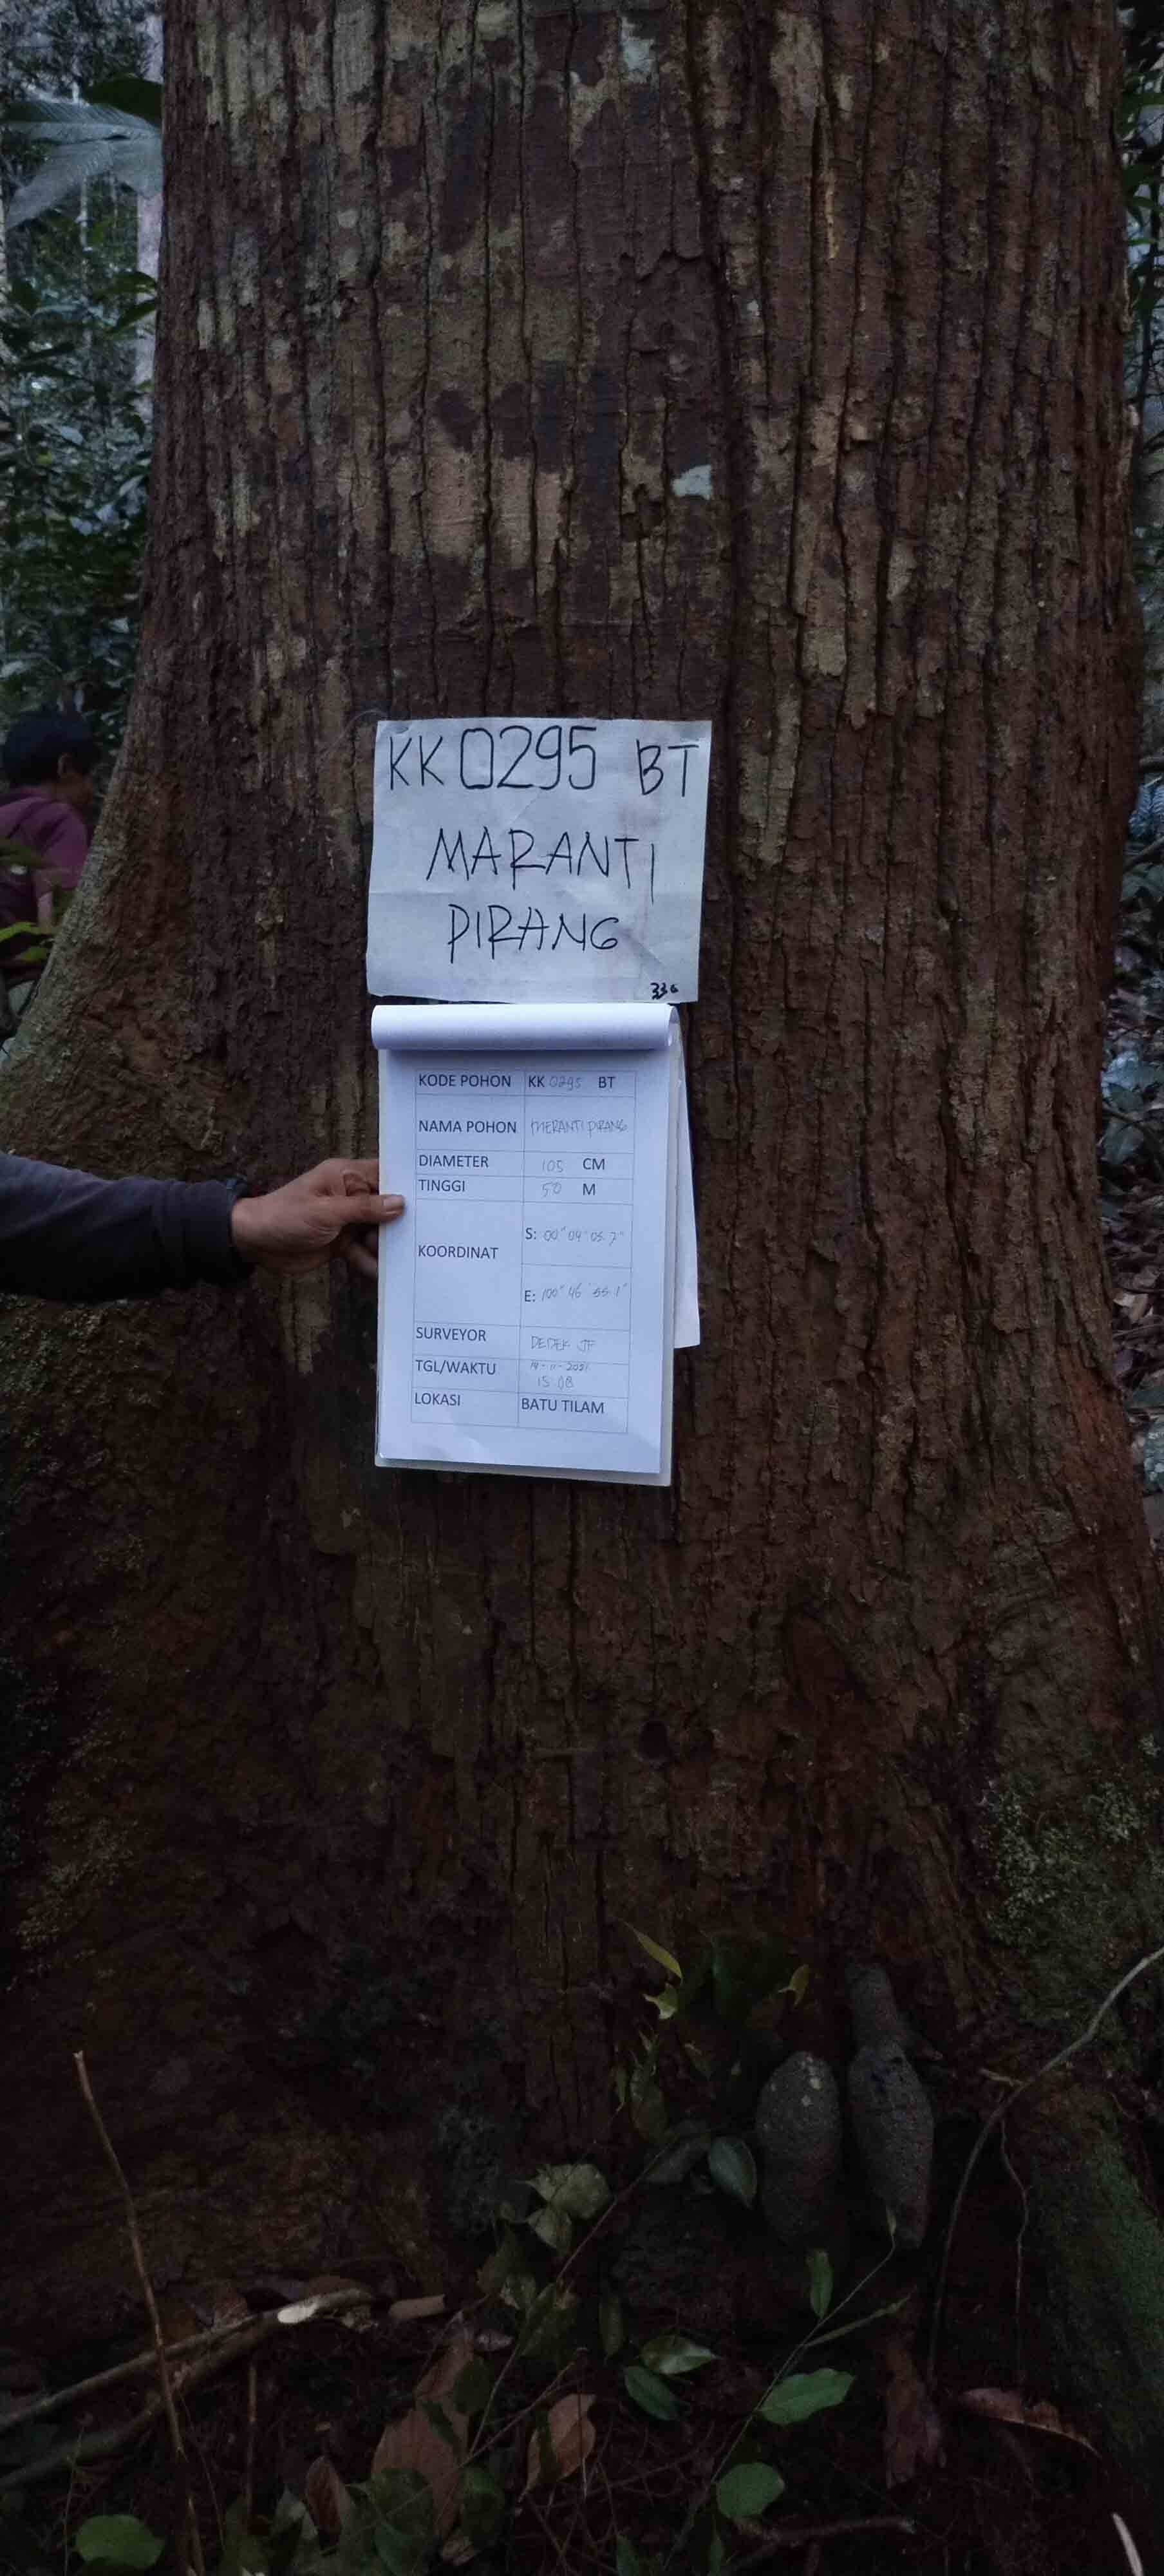 KK0295 BT
MARANTI
PIRANG
336
KODE POHON KK 0295 BT
NAMA POHON MERANTI PIRANG
DIAMETER 105 CM
TINGGI 50 M
KOORDINAT
S: 00° 04' 05.7"
E: 100° 46' 55.1"
SURVEYOR DEDEK JF
TGL/WAKTU 19-11-2021
15 08
LOKASI BATU TILAM